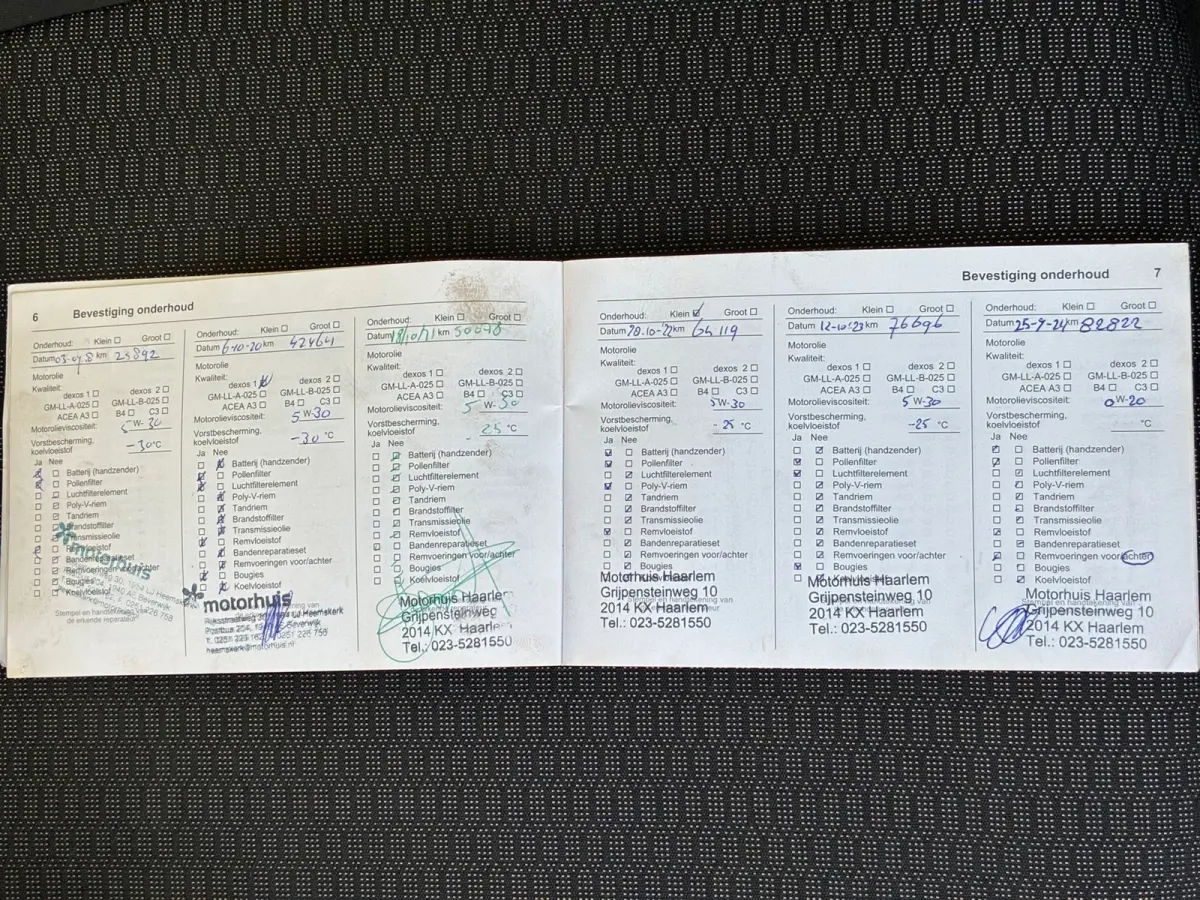 6 Bevestiging onderhoud
Onderhoud: Klein Groot
Datum km 23892
Motorolie
Kwaliteit:
dexos 1 dexos 2
GM-LL-A-025 GM-LL-B-025
ACEA A3 B4 C3
Motorolieviscositeit: 5W-30
Vorstbescherming,
koelvloeistof -30°C
Ja Nee
Batterij (handzender)
Pollenfilter
Luchtfilterelement
Poly-V-riem
Tandriem
Brandstoffilter
Transmissieolie
Remvloeistof
Bandenreparatieset
Remvoeringen voor/achter
Bougies
Koelvloeistof
motorhuis
Stempel en handtekening van
de erkende reparateur
Onderhoud: Klein Groot
Datum 6-10-20 km 42464
Motorolie
Kwaliteit:
dexos 1 dexos 2
GM-LL-A-025 GM-LL-B-025
ACEA A3 B4 C3
Motorolieviscositeit: 5W-30
Vorstbescherming,
koelvloeistof -30°C
Ja Nee
Batterij (handzender)
Pollenfilter
Luchtfilterelement
Poly-V-riem
Tandriem
Brandstoffilter
Transmissieolie
Remvloeistof
Bandenreparatieset
Remvoeringen voor/achter
Bougies
Koelvloeistof
motorhuis
heemskerk@motorhuis.nl
Onderhoud: Klein Groot
Datum km 50078
Motorolie
Kwaliteit:
dexos 1 dexos 2
GM-LL-A-025 GM-LL-B-025
ACEA A3 B4 C3
Motorolieviscositeit: 5W-30
Vorstbescherming,
koelvloeistof 25 °C
Ja Nee
Batterij (handzender)
Pollenfilter
Luchtfilterelement
Poly-V-riem
Tandriem
Brandstoffilter
Transmissieolie
Remvloeistof
Bandenreparatieset
Remvoeringen voor/achter
Bougies
Koelvloeistof
Motorhuis Haarlem
Grijpensteinweg
2014 KX Haarlem
Tel.: 023-5281550
Bevestiging onderhoud 7
Onderhoud: Klein Groot
Datum 28-10-22 km 64119
Motorolie
Kwaliteit:
dexos 1 dexos 2
GM-LL-A-025 GM-LL-B-025
ACEA A3 B4 C3
Motorolieviscositeit: 5W-30
Vorstbescherming,
koelvloeistof -25 °C
Ja Nee
Batterij (handzender)
Pollenfilter
Luchtfilterelement
Poly-V-riem
Tandriem
Brandstoffilter
Transmissieolie
Remvloeistof
Bandenreparatieset
Remvoeringen voor/achter
Bougies
Motorhuis Haarlem
Grijpensteinweg 10
2014 KX Haarlem
Tel.: 023-5281550
Onderhoud: Klein Groot
Datum 12-10-23 km 76696
Motorolie
Kwaliteit:
dexos 1 dexos 2
GM-LL-A-025 GM-LL-B-025
ACEA A3 B4 C3
Motorolieviscositeit: 5W-30
Vorstbescherming,
koelvloeistof -25 °C
Ja Nee
Batterij (handzender)
Pollenfilter
Luchtfilterelement
Poly-V-riem
Tandriem
Brandstoffilter
Transmissieolie
Remvloeistof
Bandenreparatieset
Remvoeringen voor/achter
Bougies
Motorhuis Haarlem
Grijpensteinweg 10
2014 KX Haarlem
Tel.: 023-5281550
Onderhoud: Klein Groot
Datum 25-9-24 km 82822
Motorolie
Kwaliteit:
dexos 1 dexos 2
GM-LL-A-025 GM-LL-B-025
ACEA A3 B4 C3
Motorolieviscositeit: 0W-20
Vorstbescherming,
koelvloeistof °C
Ja Nee
Batterij (handzender)
Pollenfilter
Luchtfilterelement
Poly-V-riem
Tandriem
Brandstoffilter
Transmissieolie
Remvloeistof
Bandenreparatieset
Remvoeringen voor/achter
Bougies
Koelvloeistof
Motorhuis Haarlem
Grijpensteinweg 10
2014 KX Haarlem
Tel.: 023-5281550